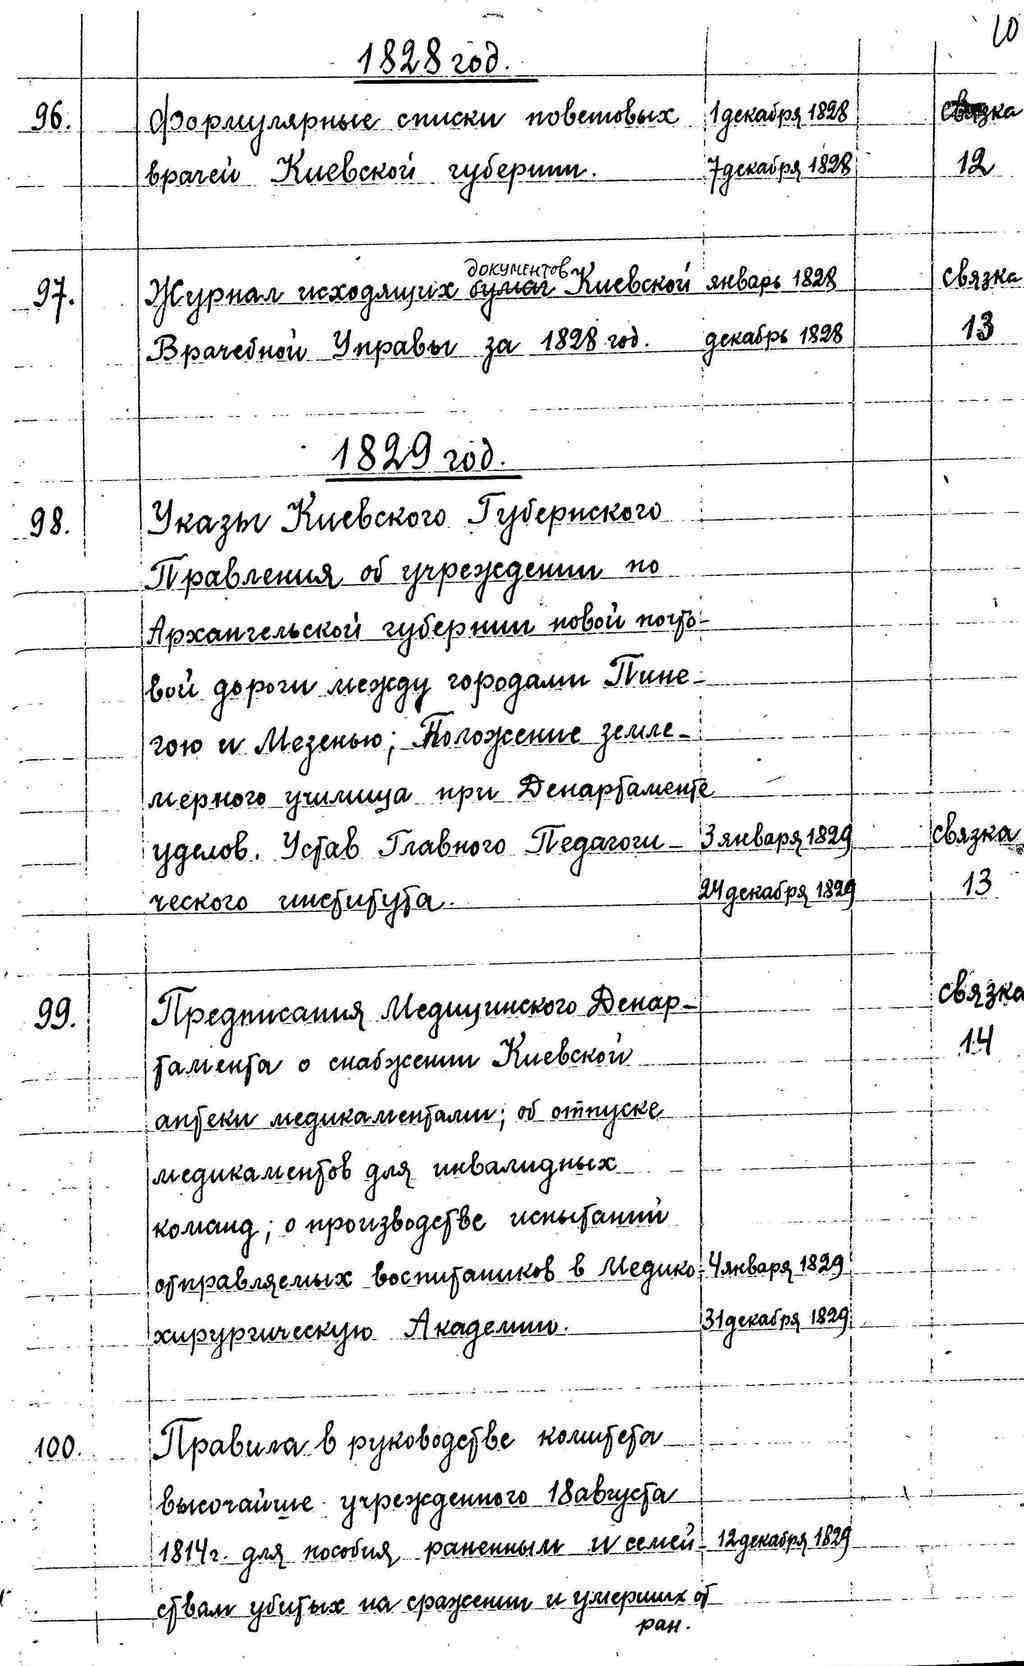 10
1828 год.
96. Формулярные списки поветовых 1 декабря 1828 связка
врачей Киевской губернии. 7 декабря 1828 12
документов
97. Журнал исходящих бумаг Киевской январь 1828 связка
Врачебной Управы за 1828 год. декабрь 1828 13
1829 год.
98. Указы Киевского Губернского
Правления об учреждении по
Архангельской губернии новой почто-
вой дороги между городами Пине-
гою и Мезенью; Положение земле-
мерного училища при Департаменте
уделов. Устав Главного Педагоги- 3 января 1829 связка
ческого института. 24 декабря 1829 13
99. Предписания Медицинского Депар- связка
тамента о снабжении Киевской 14
аптеки медикаментами; об отпуске
медикаментов для инвалидных
команд; о производстве испытаний
отправляемых воспитаников в Медико- 4 января 1829
хирургическую Академию. 31 декабря 1829
100. Правила в руководстве комитета
высочайше учрежденного 18 августа
1814 г. для пособия раненным и семей- 12 декабря 1829
ствам убитых на сражении и умерших от
ран.